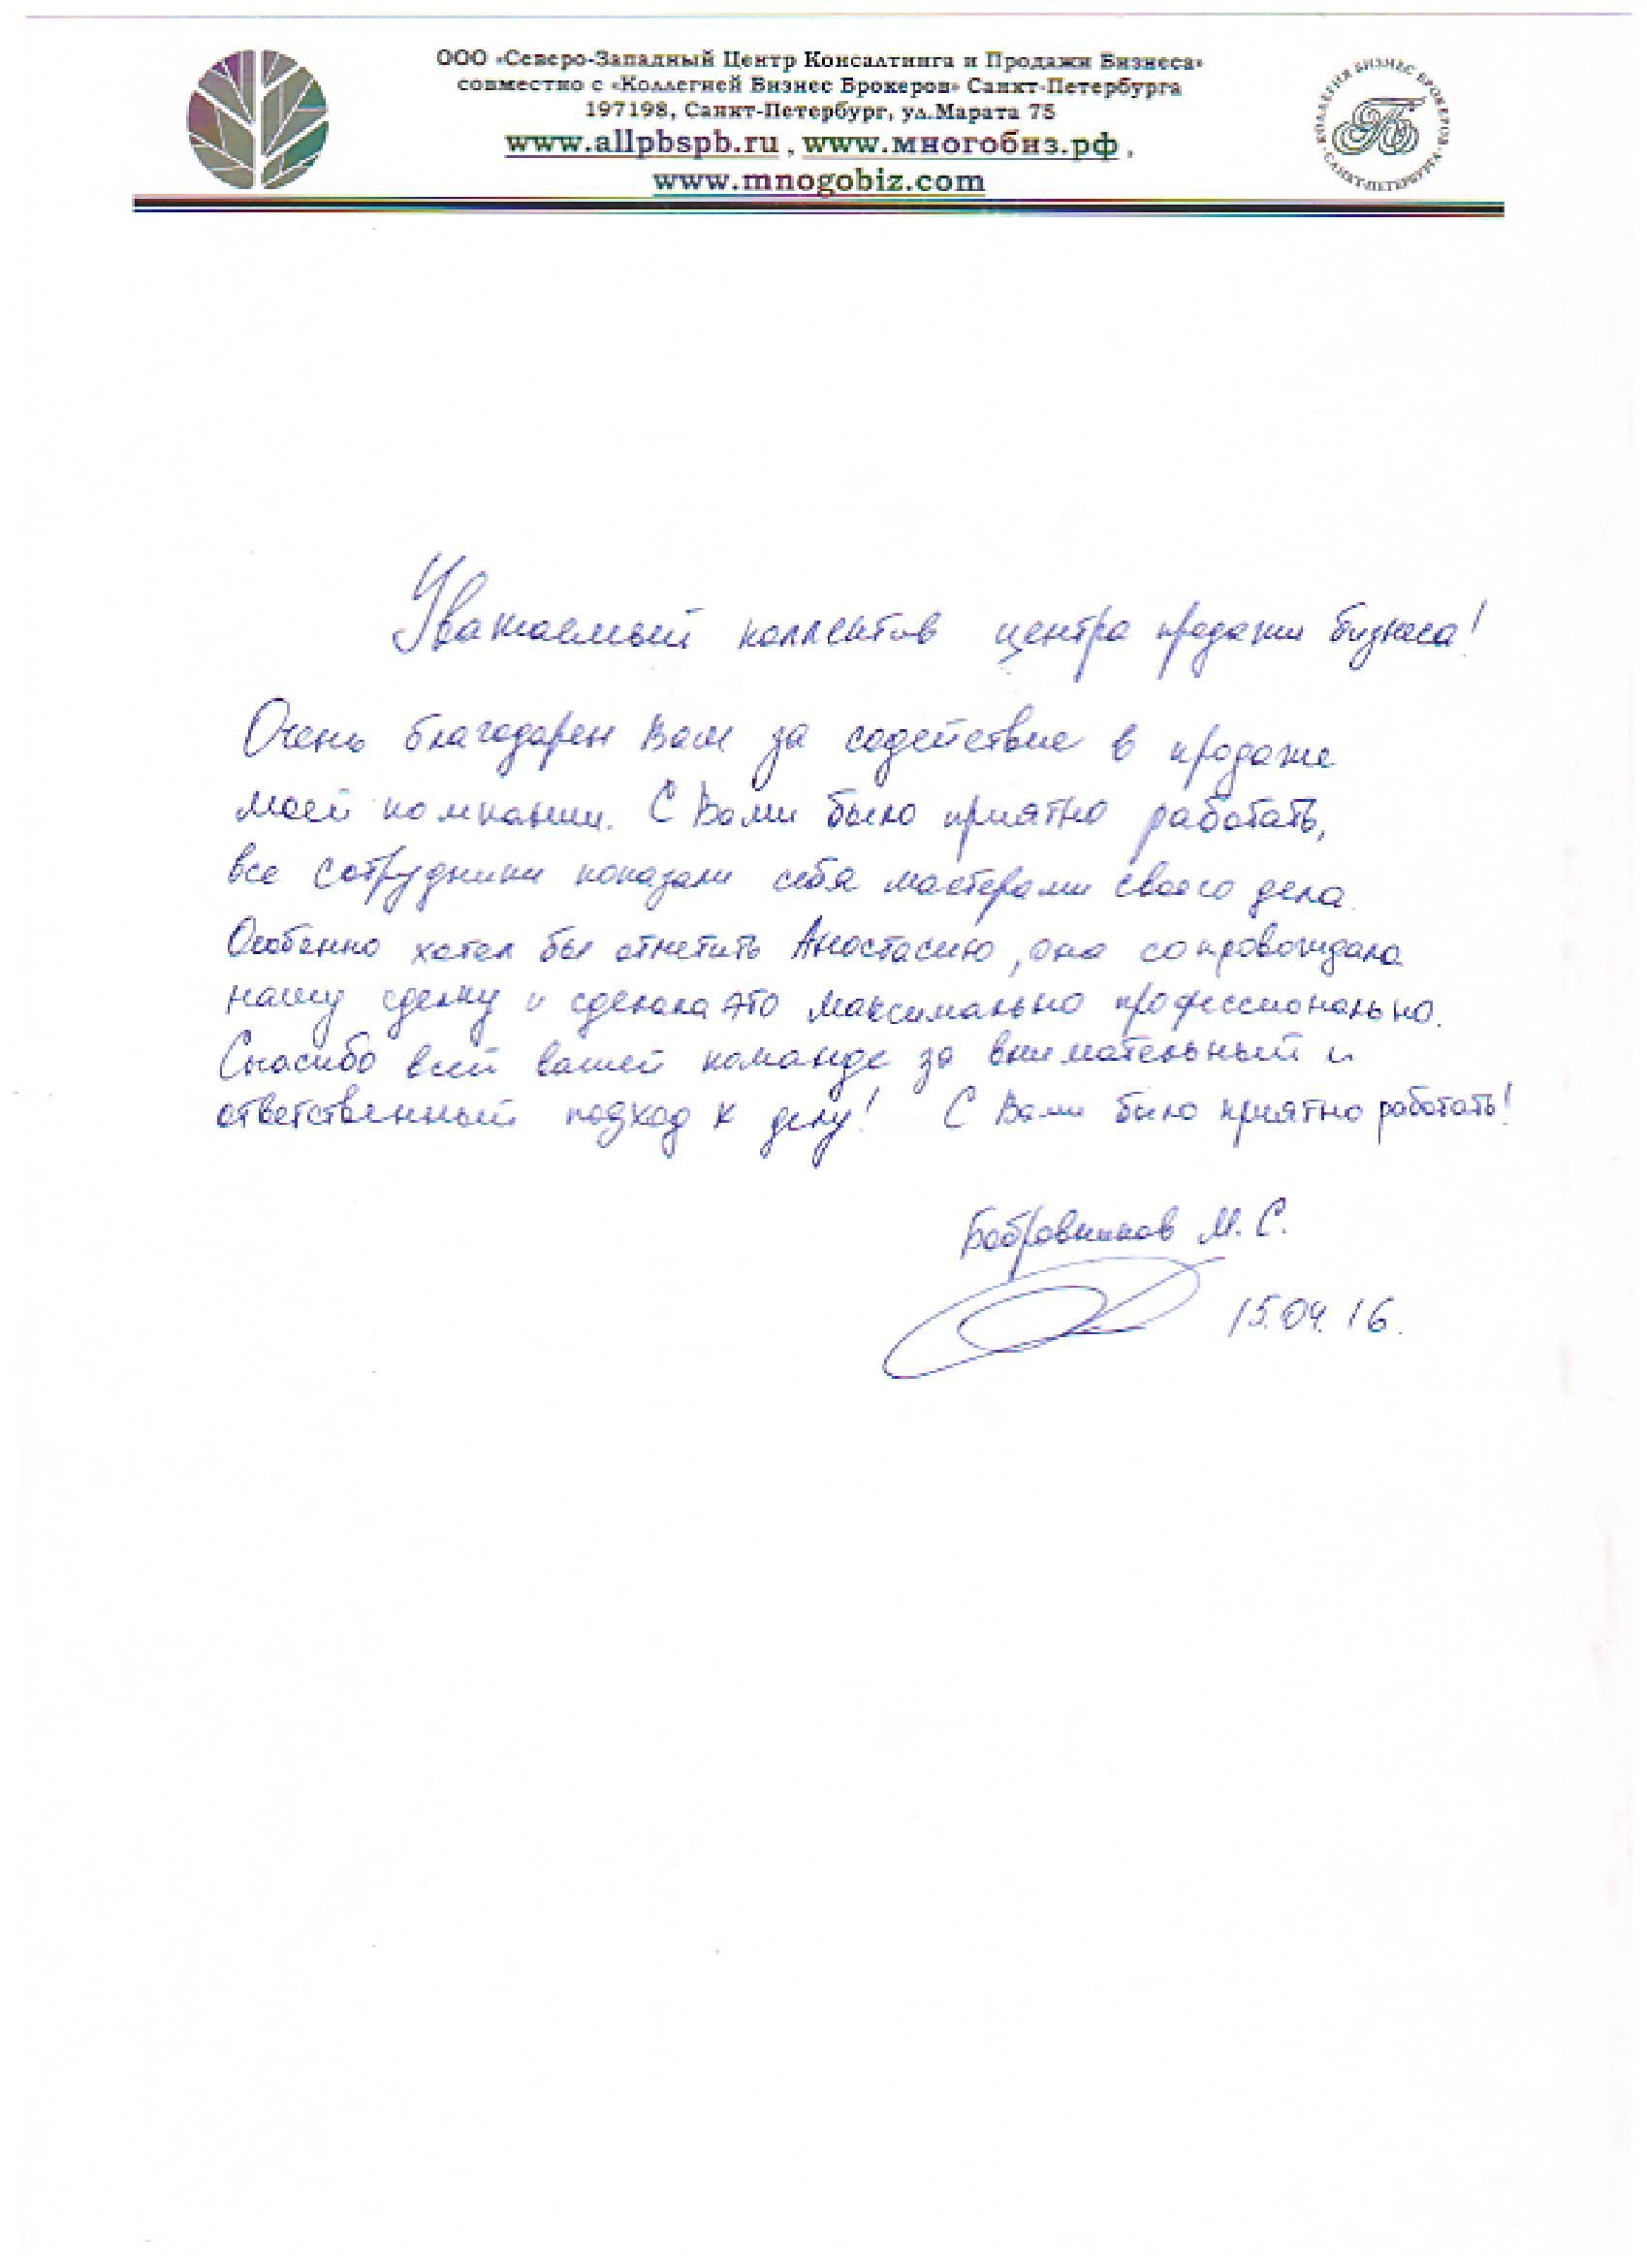 ООО «Северо-Западный Центр Консалтинга и Продажи Бизнеса»
совместно с «Коллегией Бизнес Брокеров» Санкт-Петербурга
197198, Санкт-Петербург, ул.Марата 75
www.allpbspb.ru , www.многобиз.рф ,
www.mnogobiz.com
КОЛЛЕГИЯ БИЗНЕС БРОКЕРОВ
САНКТ-ПЕТЕРБУРГА
Уважаемый коллектив центра продажи бизнеса!
Очень благодарен Вам за содействие в продаже
моей компании. С Вами было приятно работать,
все сотрудники показали себя мастерами своего дела.
Особенно хотел бы отметить Анастасию, она сопровождала
нашу сделку и сделала это максимально профессионально.
Спасибо всей вашей команде за внимательный и
ответственный подход к делу! С Вами было приятно работать!
Бобровников М. С.
15.04.16.